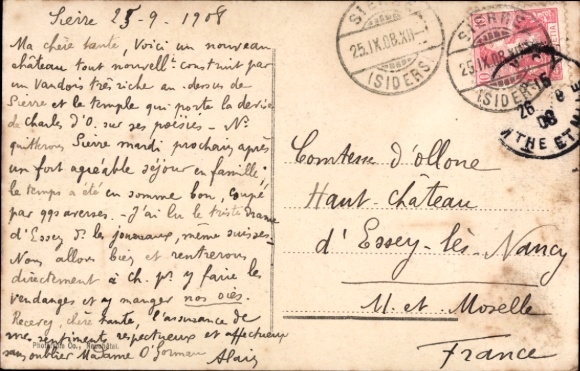 Sierre 25-9-1908
Ma chère tante, Voici un nouveau
château tout nouvellt construit par
un Vaudois très riche au-dessus de
Sierre et le temple qui porte la devise
de Charles d'O. sur ses poésies - Ns
quitterons Sierre mardi prochain après
un fort agréable séjour en famille:
le temps a été en somme bon, coupé
par qqs averses. - J'ai lu le triste drame
d'Essey ds les journaux, même suisses.
Nous allons bien et rentrerons
directement à Ch. pr y faire les
vendanges et y manger nos oies.
Recevez, chère tante, l'assurance de
mes sentiments respectueux et affectueux
sans oublier Madame O'Gorman Alain
Photo Co., Neuchâtel.
SIERRE
25.IX.08.XII
(SIDERS)
SIERRE
25.IX.08.XII
(SIDERS)
10
26
08
Comtesse d'Ollone
Haut-Château
d'Essey-lès-Nancy
M. et Moselle
France